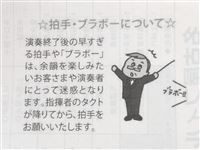 ☆拍手・ブラボーについて☆
演奏終了後の早すぎ
る拍手や「ブラボー」
は、余韻を楽しみた
いお客さまや演奏者
にとって迷惑となり
ます。指揮者のタクト
が降りてから、拍手を
お願いいたします。
ブラボー!!